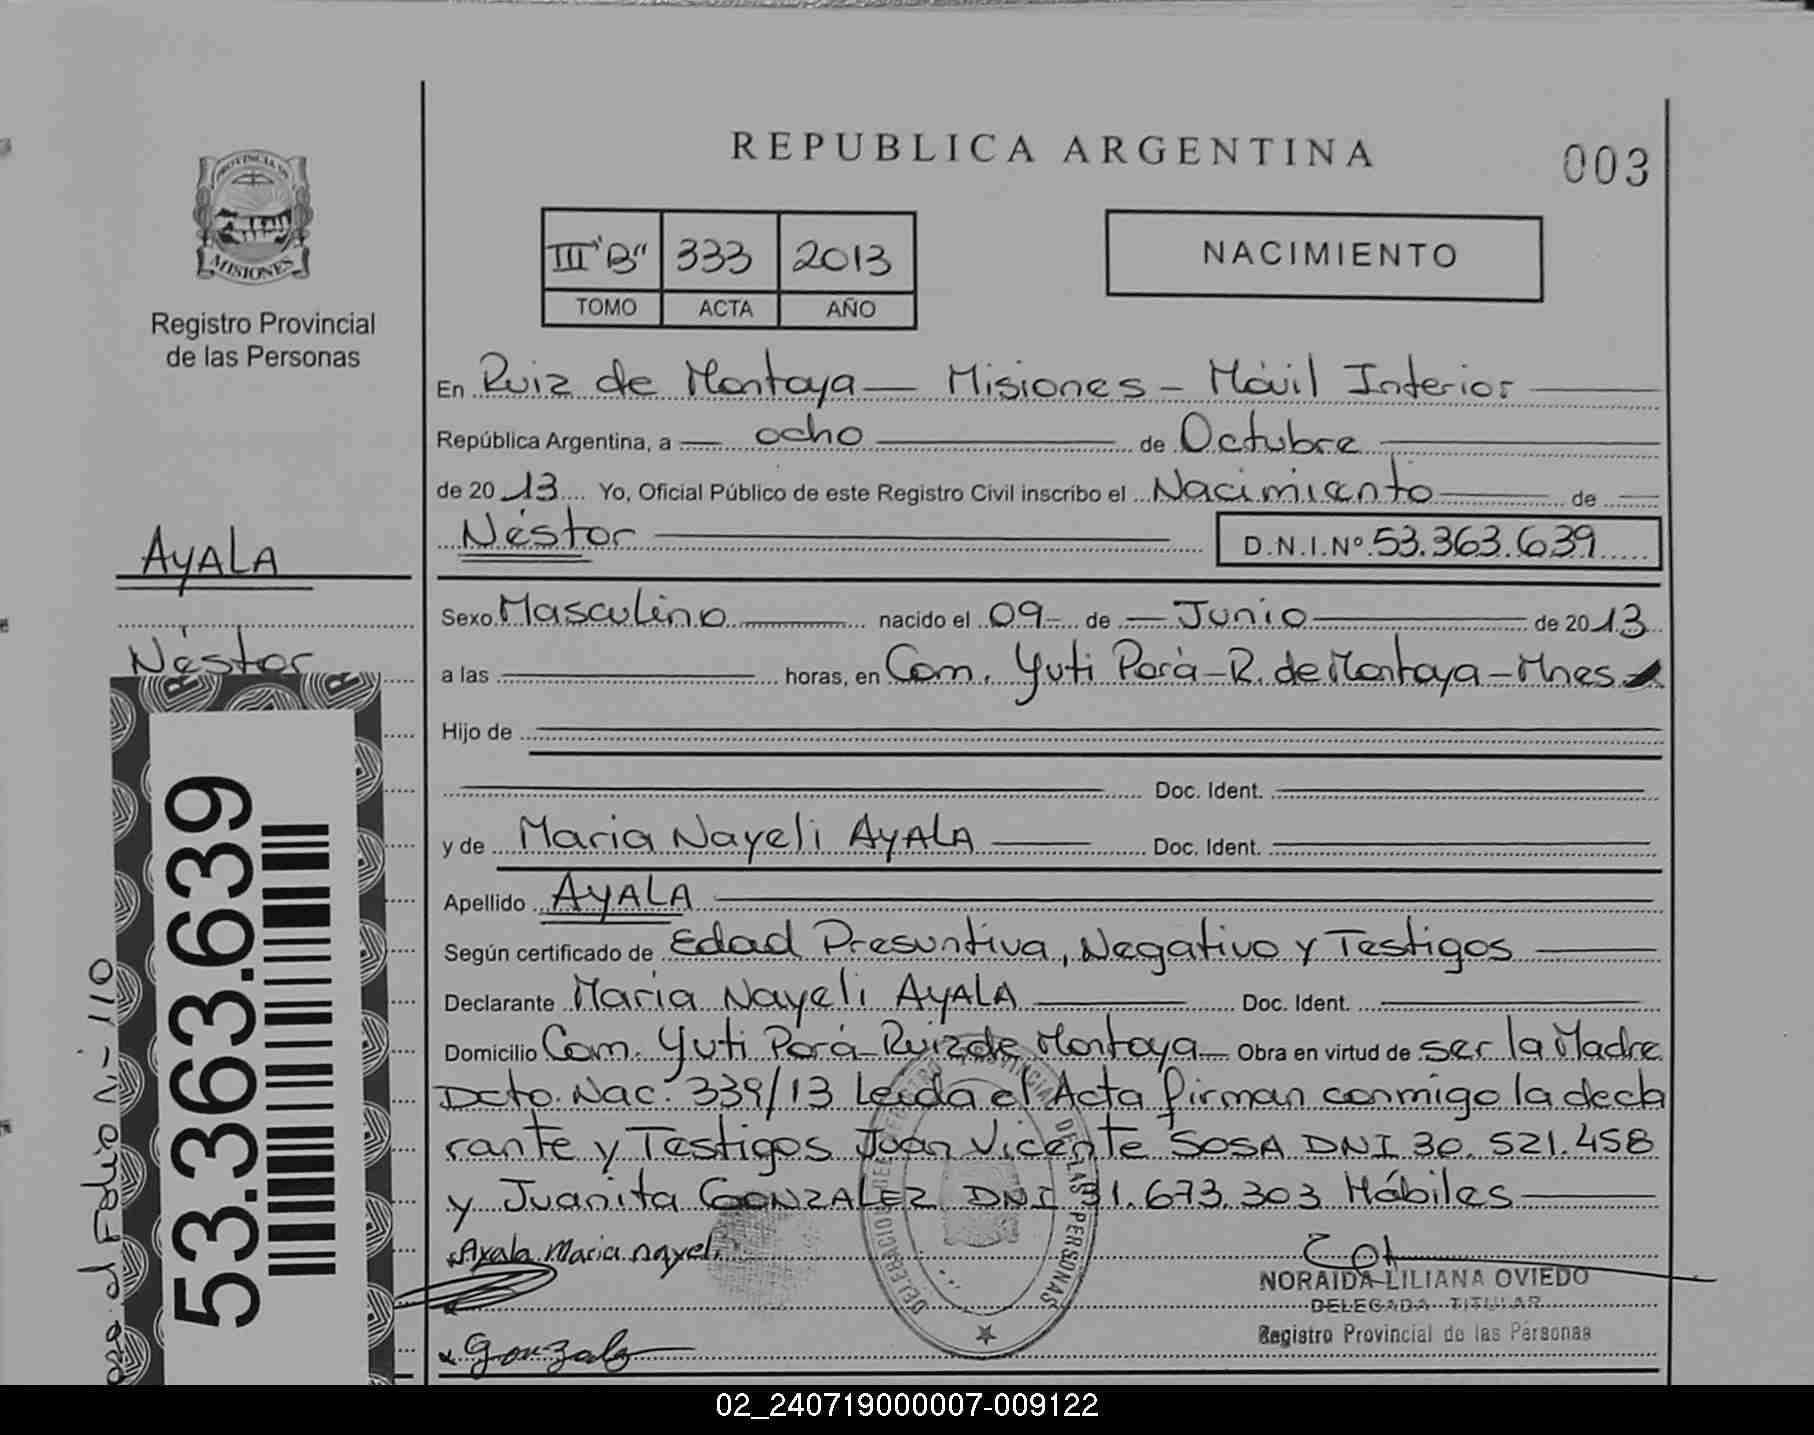 PROVINCIA DE
MISIONES
Registro Provincial
de las Personas
AYALA
Néstor
53.363.639
pasa al Folio N: 110
REPUBLICA ARGENTINA
003
III "B" 333 2013
TOMO ACTA AÑO
NACIMIENTO
En Ruiz de Montoya — Misiones - Móvil Interior
República Argentina, a ocho de Octubre
de 2013 Yo, Oficial Público de este Registro Civil inscribo el Nacimiento de
Néstor D.N.I.Nº 53.363.639
Sexo Masculino nacido el 09 de Junio de 2013
a las horas, en Com. Yuti Porá - R. de Montoya - Mnes
Hijo de
Doc. Ident.
y de Maria Nayeli AYALA Doc. Ident.
Apellido AYALA
Según certificado de Edad Presuntiva, Negativo y Testigos
Declarante Maria Nayeli AYALA Doc. Ident.
Domicilio Com. Yuti Porá - Ruiz de Montoya Obra en virtud de ser la Madre
Dcto. Nac. 339/13 Leída el Acta firman conmigo la decla
rante y Testigos Juan Vicente SOSA DNI 30.521.458
y Juanita GONZALEZ DNI 31.673.303 Hábiles
Ayala Maria nayeli
NORAIDA LILIANA OVIEDO
DELEGADA TITULAR
Registro Provincial de las Personas
Gonzalez
02_240719000007-009122